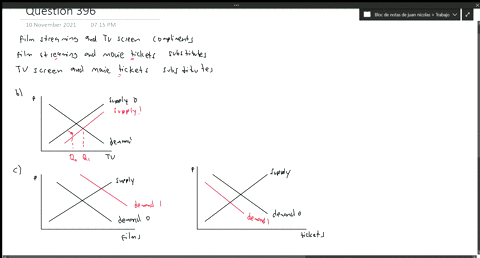 Question 396
10 November 2021 07:15 PM
Bloc de notas de juan nicolas > Trabajo
film streaming and TV screen compliments
film streaming and movie tickets substitutes
TV screen and movie tickets substitutes
b)
P
supply 0
supply 1
demand
Q0 Q1 TV
c)
P
supply
demand 1
demand 0
films
P
supply
demand 0
demand 1
tickets